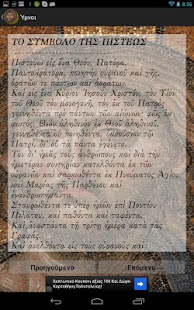 8:06
Ύμνοι
ΤΟ ΣΥΜΒΟΛΟ ΤΗΣ ΠΙΣΤΕΩΣ
Πιστεύω εἰς ἕνα Θεόν, Πατέρα,
Παντοκράτορα, ποιητὴν οὐρανοῦ καὶ γῆς,
ὁρατῶν τε πάντων καὶ ἀοράτων.
Καὶ εἰς ἕνα Κύριον Ἰησοῦν Χριστόν, τὸν Υἱὸν
τοῦ Θεοῦ τὸν μονογενῆ, τὸν ἐκ τοῦ Πατρὸς
γεννηθέντα πρὸ πάντων τῶν αἰώνων· φῶς ἐκ
φωτός, Θεὸν ἀληθινὸν ἐκ Θεοῦ ἀληθινοῦ,
γεννηθέντα οὐ ποιηθέντα, ὁμοούσιον τῷ
Πατρί, δι' οὗ τὰ πάντα ἐγένετο.
Τὸν δι' ἡμᾶς τοὺς ἀνθρώπους καὶ διὰ τὴν
ἡμετέραν σωτηρίαν κατελθόντα ἐκ τῶν
οὐρανῶν καὶ σαρκωθέντα ἐκ Πνεύματος Ἁγίου
καὶ Μαρίας τῆς Παρθένου καὶ
ἐνανθρωπήσαντα.
Σταυρωθέντα τε ὑπὲρ ἡμῶν ἐπὶ Ποντίου
Πιλάτου, καὶ παθόντα καὶ ταφέντα.
Καὶ ἀναστάντα τῇ τρίτῃ ἡμέρα κατὰ τὰς
Γραφάς.
Καὶ ἀνελθόντα εἰς τοὺς οὐρανοὺς καὶ
Προηγούμενο
Επόμενο
Εκπτωτικό Κουπόνι αξίας 10€ Και Δώρο
Καρτοθήκη Πολυτελείας!